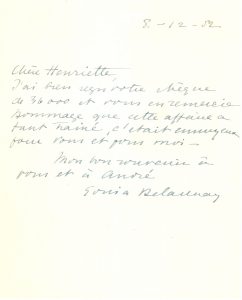 8-12-52
Chère Henriette,
J'ai bien reçu votre chèque
de 36000 et vous en remercie
Dommage que cette affaire a
tant trainé, c'était ennuyeux
pour vous et pour moi -
Mon bon souvenir à
vous et à André
Sonia Delaunay